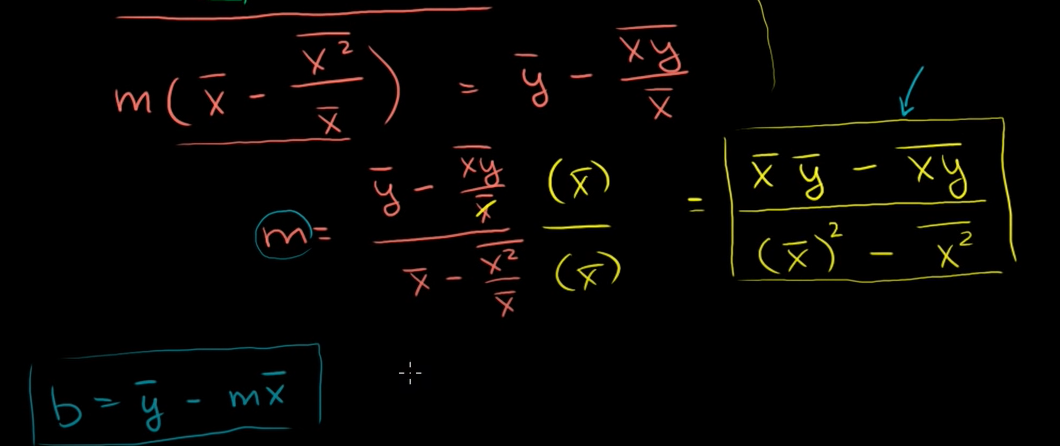 m( x̄ - \overline{x²}/x̄ ) = ȳ - \overline{xy}/x̄
m = (ȳ - \overline{xy}/x̄)/(x̄ - \overline{x²}/x̄) (x̄)/(x̄) = (x̄ ȳ - \overline{xy})/((x̄)² - \overline{x²})
b = ȳ - mx̄